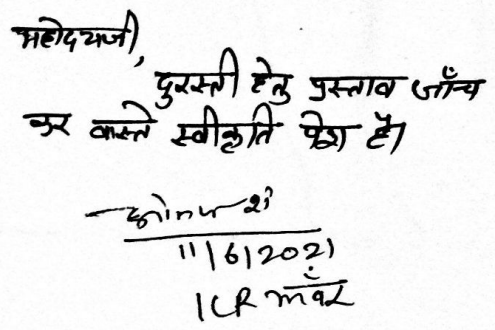 महोदयजी,
दुरस्ती हेतु प्रस्ताव जाँच
कर वास्ते स्वीकृति पेश है।
11/6/2021
ICR